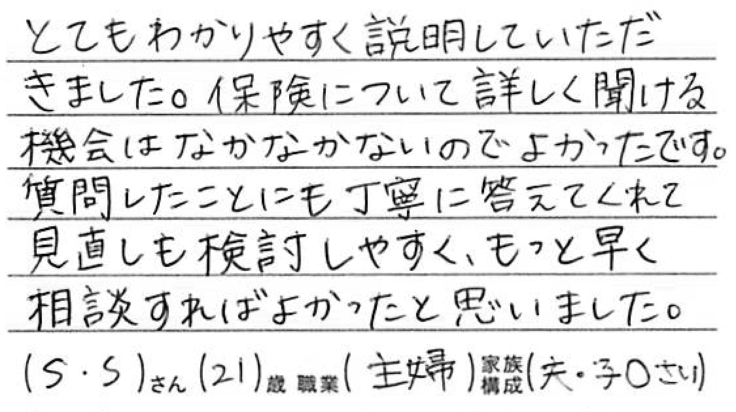 とてもわかりやすく説明していただ
きました。保険について詳しく聞ける
機会はなかなかないのでよかったです。
質問したことにも丁寧に答えてくれて
見直しも検討しやすく、もっと早く
相談すればよかったと思いました。
(S・S)さん(21)歳 職業(主婦)家族構成(夫・子0さい)